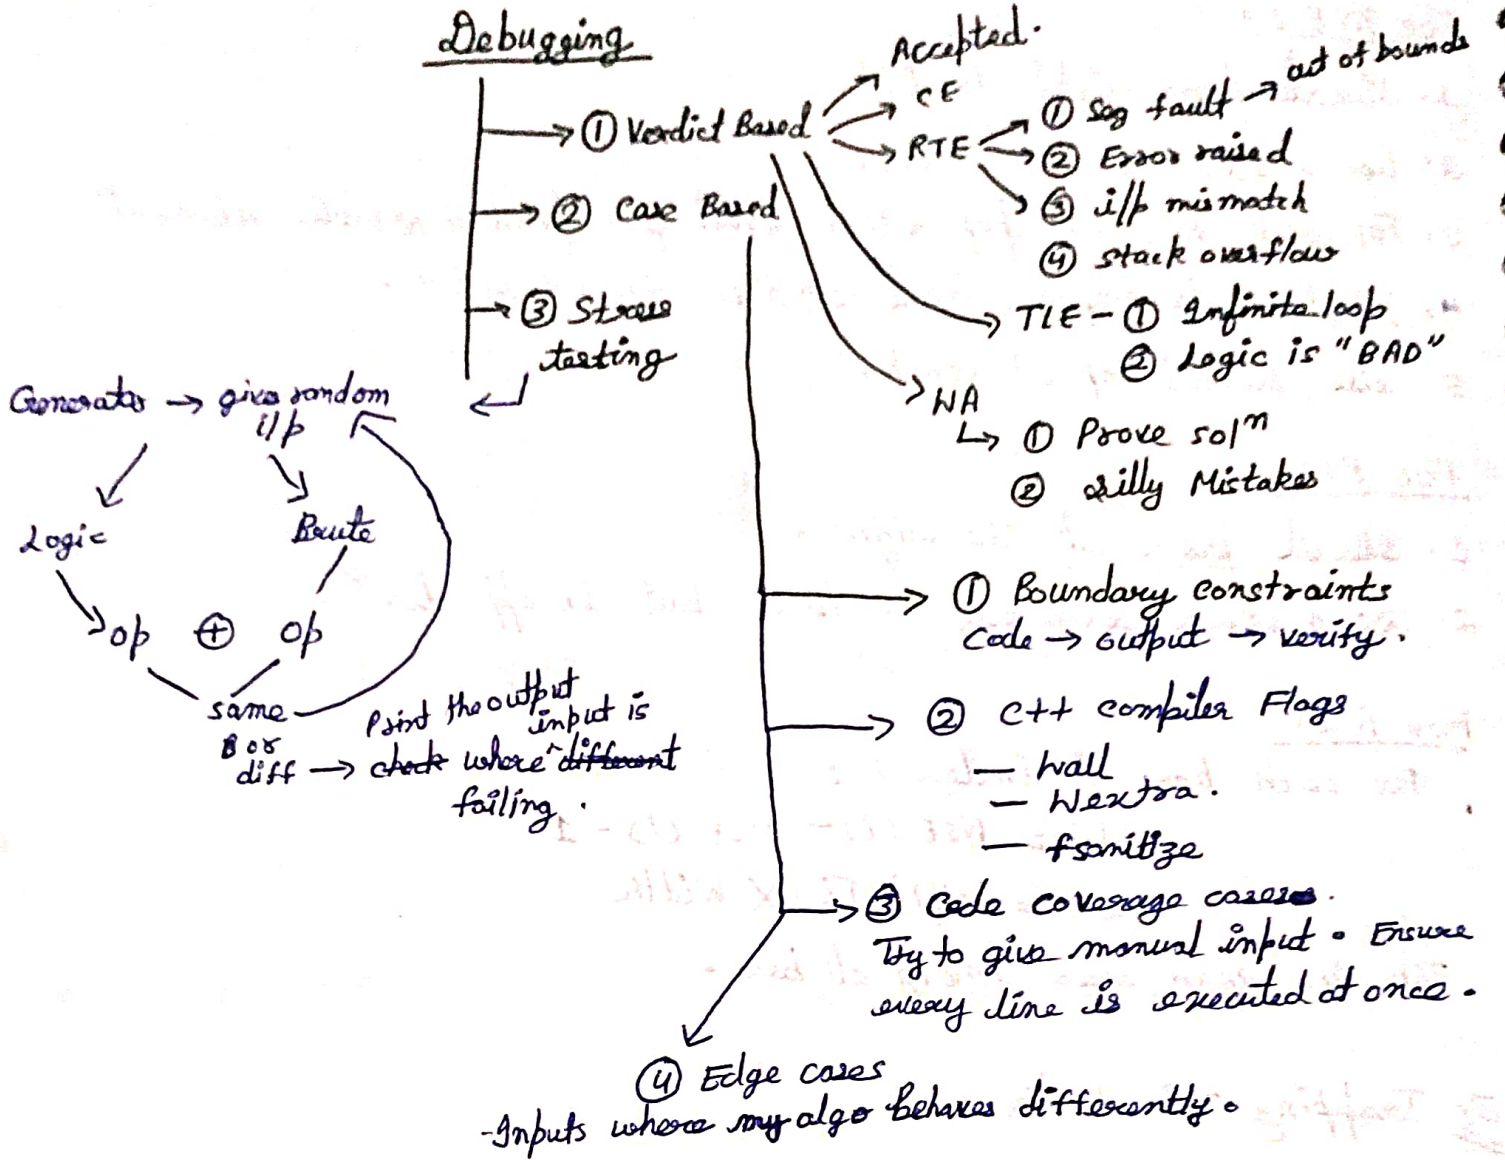 Debugging
① Verdict Based
Accepted.
CE
RTE
① Seg fault → out of bounds
② Error raised
③ i/p mismatch
④ stack overflow
TLE - ① Infinite loop
② Logic is "BAD"
WA
① Prove solⁿ
② Silly Mistakes
② Case Based
① Boundary constraints
Code → output → verify.
② C++ compiler Flags
— Wall
— Wextra.
— fsanitize
③ Code coverage cases.
Try to give manual input. Ensure
every line is executed at once.
④ Edge cases
-Inputs where my algo behaves differently.
③ Stress
testing
Generator → give random
i/p
Logic
Brute
op ⊕ op
same
or
diff → check where different
Print the output
input is
failing.